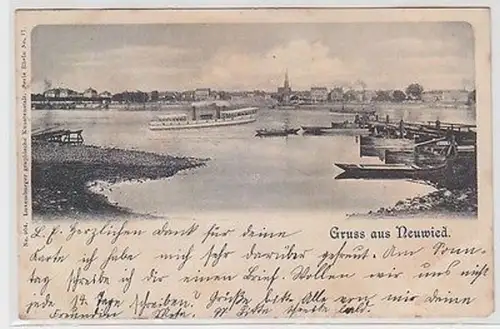 No. 604. Luxemburger graphische Kunstanstalt. Serie Rhein No. 17.
Gruss aus Neuwied.
L. F. Herzlichen Dank für deine
Karte ich habe mich sehr darüber gefreut. Am Sonn-
tag schreibe ich dir einen Brief. Wollen wir uns nicht
jede Tage schreiben? Grüße bitte Alle von mir deine
Freundin Bitte